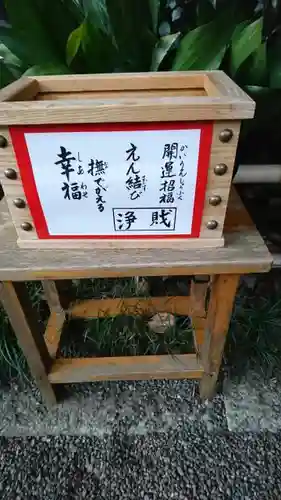 開運招福
えん結び
浄財
撫でかえる
幸福